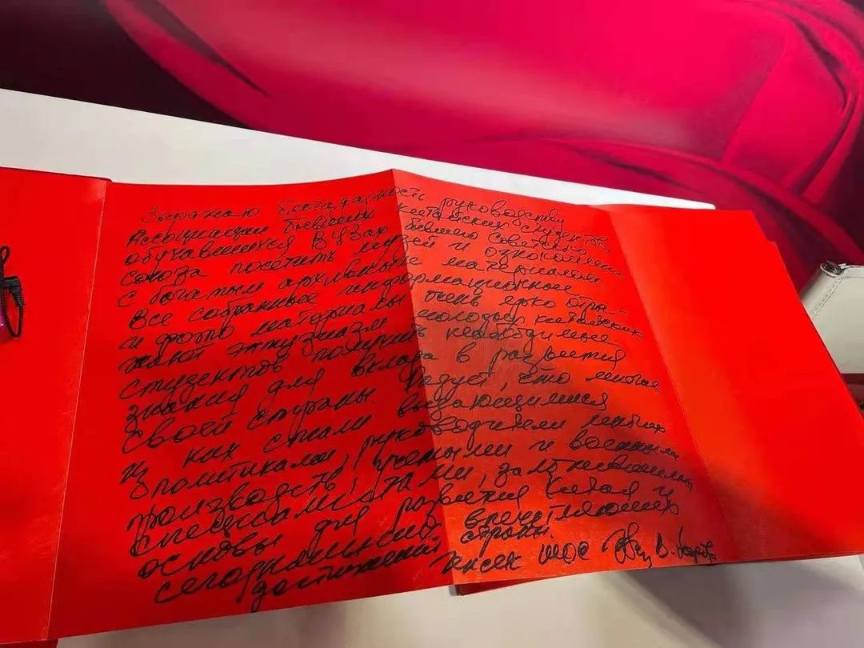 Выражаю благодарность руководству
Ассоциации бывших китайских студентов,
обучавшихся в Вузах бывшего Советского
союза посетить музей и ознакомиться
с богатым архивным материалом
Все собранные информационные
и фото материалы очень ярко отра-
жают энтузиазм молодых китайских
студентов получить необходимые
знания для вклада в развития
своей страны Радует, что многие
из них стали выдающимися
политиками, руководителями многих
производств, учеными и военными
специалистами, заложившими
основы для развития Китая и
сегодняшних впечатляющих
достижений страны.
ШОС В.